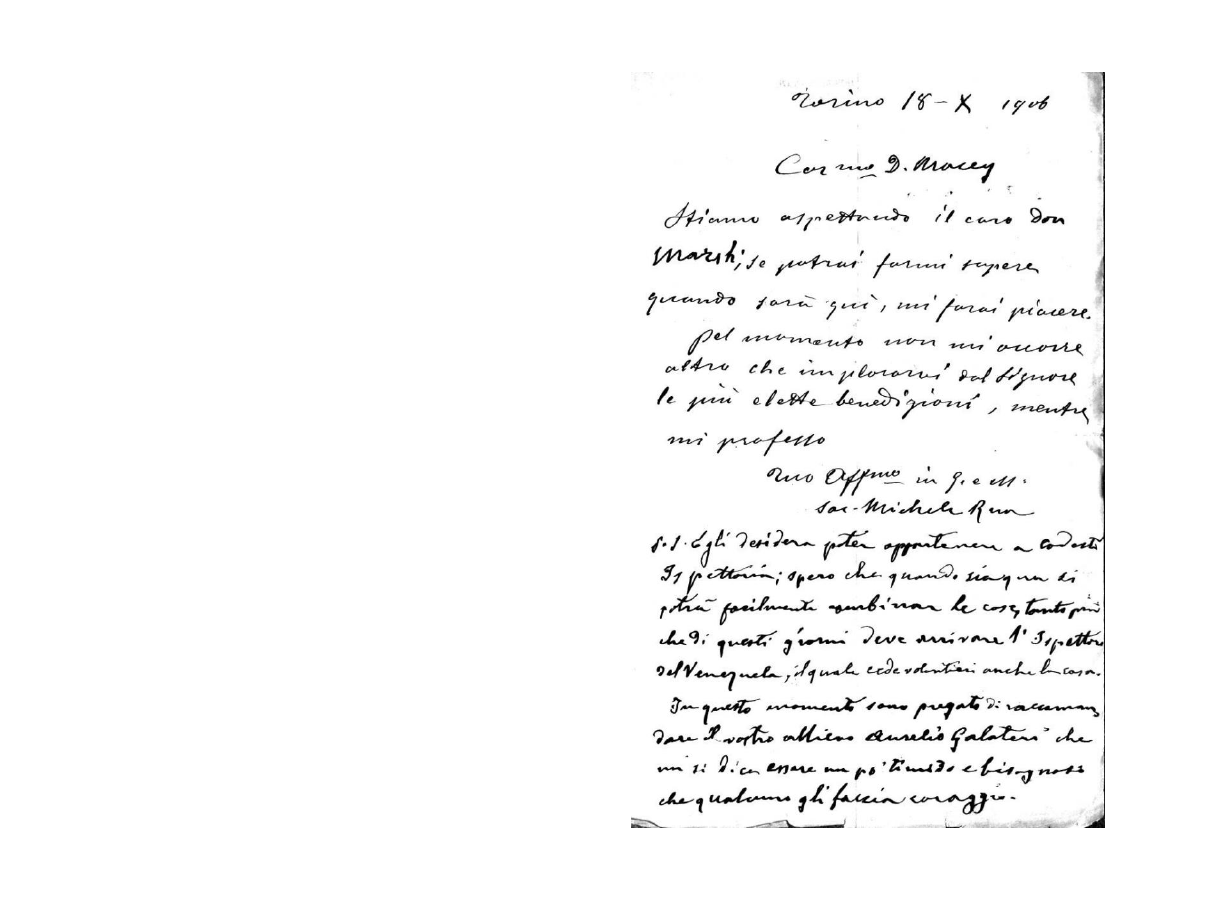 Torino 18-X 1906
Car mo D. Macey
Stiamo aspettando il caro Don
Marsh; se potrai farmi sapere
quando sarà quì, mi farai piacere.
Pel momento non mi occorre
altro che implorarvi dal Signore
le più elette benedizioni, mentre
mi professo
Tuo Affmo in G. e M.
Sac. Michele Rua
P.S. Egli desidera poter appartenere a codesta
Ispettoria; spero che quando sia qua si
potrà facilmente combinar le cose, tanto più
che di questi giorni deve arrivare l'Ispettore
del Venezuela, il quale cede volentieri anche la cosa.
In questo momento sono pregato di raccoman
dare il vostro allievo Aurelio Galateri che
mi si dica essere un po' timido e bisognoso
che qualcuno gli faccia coraggio.